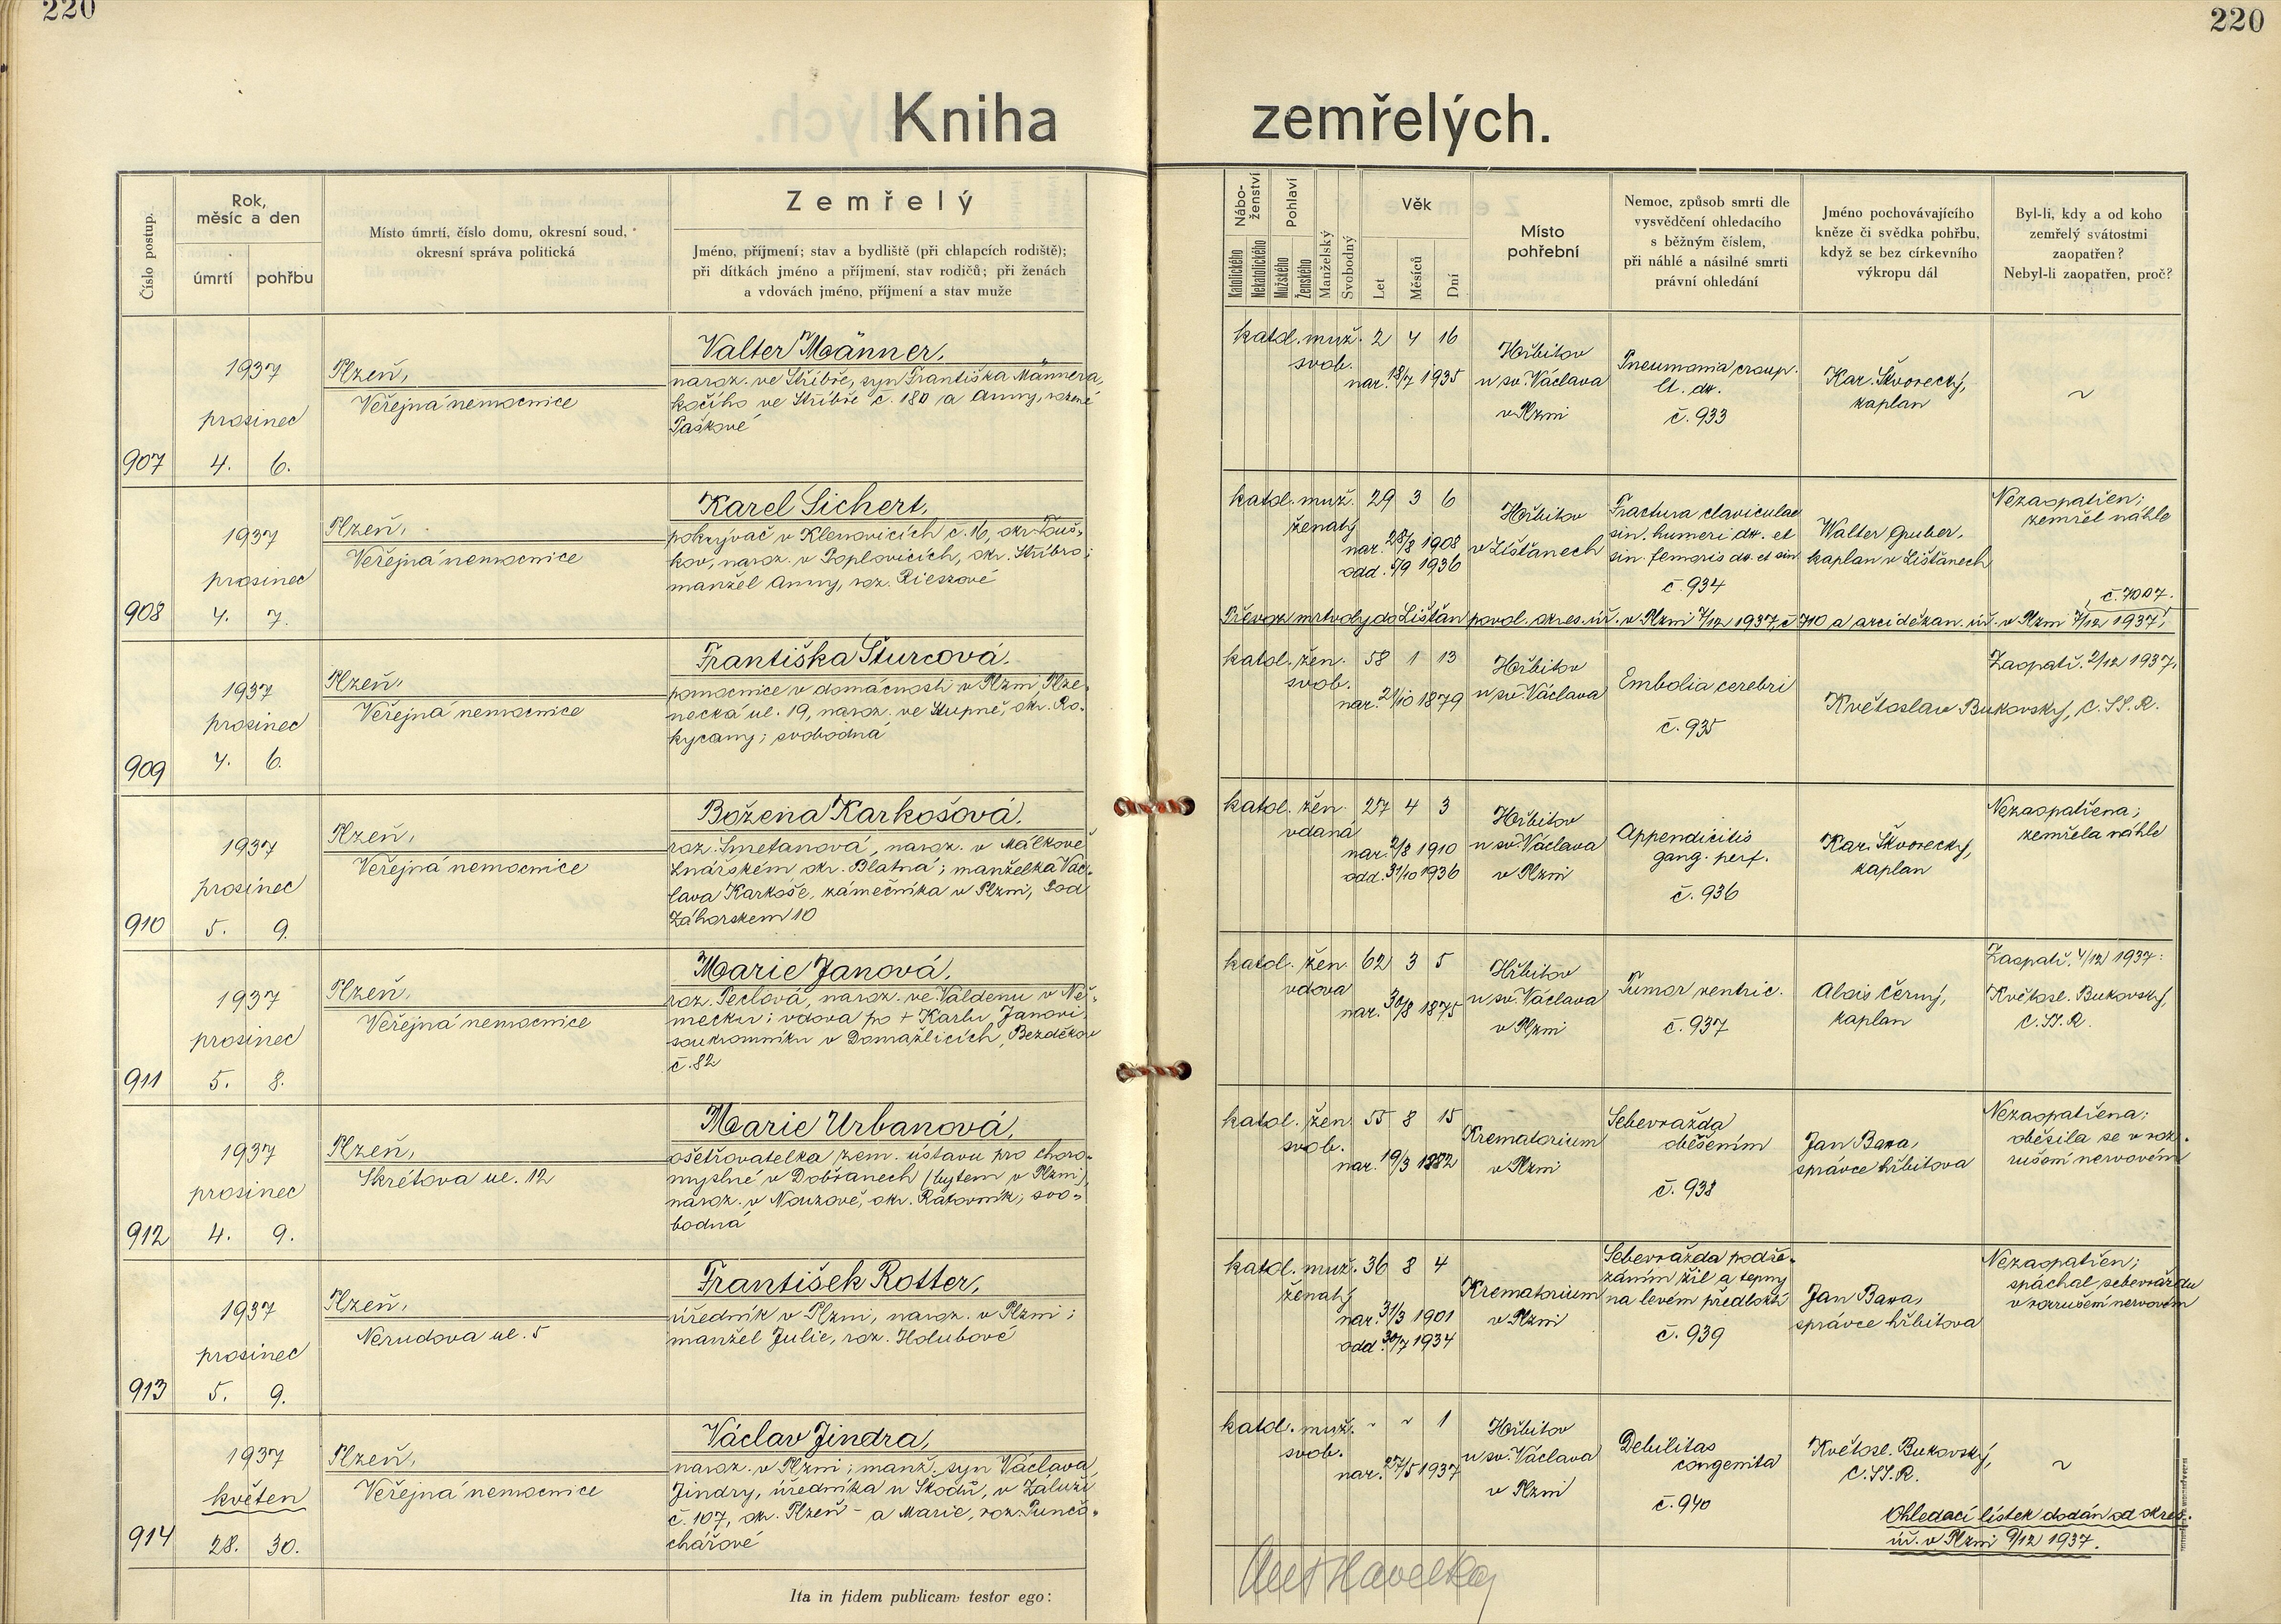 220
220
Kniha
zemřelých.
Číslo postup.
Rok,
měsíc a den
úmrtí
pohřbu
Místo úmrtí, číslo domu, okresní soud,
okresní správa politická
Zemřelý
Jméno, příjmení; stav a bydliště (při chlapcích rodiště);
při dítkách jméno a příjmení, stav rodičů; při ženách
a vdovách jméno, příjmení a stav muže
Nábo-
ženství
Katolického
Nekatolického
Pohlaví
Mužského
Ženského
Manželský
Svobodný
Věk
Let
Měsíců
Dní
Místo
pohřební
Nemoc, způsob smrti dle
vysvědčení ohledacího
s běžným číslem,
při náhlé a násilné smrti
právní ohledání
Jméno pochovávajícího
kněze či svědka pohřbu,
když se bez církevního
výkropu dál
Byl-li, kdy a od koho
zemřelý svátostmi
zaopatřen?
Nebyl-li zaopatřen, proč?
907
1937
prosinec
4. 6.
Plzeň,
Veřejná nemocnice
Valter Männer,
naroz. ve Stříbře, syn Františka Männera,
kočího ve Stříbře č. 180 a Anny, rozené
Paškové
katol. muž. 2 4 16
svob.
nar. 18/7 1935
Hřbitov
u sv. Václava
v Plzni
Pneumonia croup.
lt. dx.
č. 933
Kar. Škvorecký,
kaplan
~
908
1937
prosinec
4. 7.
Plzeň,
Veřejná nemocnice
Karel Sichert,
pokrývač v Klenovicích č. 16, okr. Touš-
kov, naroz. v Poplovicích, okr. Stříbro;
manžel Anny, roz. Rieszové
katol. muž. 29 3 6
ženatý
nar. 28/8 1908
odd. 5/9 1936
Hřbitov
v Líšťanech
Fractura claviculae
sin. humeri dx. et
sin. femoris dx. et sin.
č. 934
Walter Gruber,
kaplan v Líšťanech
Nezaopatřen;
zemřel náhle
č. 7007.
Převoz mrtvoly do Líšťan povol. okres. úř. v Plzni 7/12 1937, č 710 a arciděkan. úř. v Plzni 7/12 1937.
909
1937
prosinec
4. 6.
Plzeň,
Veřejná nemocnice
Františka Šturcová,
pomocnice v domácnosti v Plzni, Plze-
necká ul. 19, naroz. ve Stupně, okr. Ro-
kycany; svobodná
katol. žen. 58 1 13
svob.
nar. 21/10 1879
Hřbitov
u sv. Václava
Embolia cerebri
č. 935
Zaopatř. 2/12 1937.
Květoslav Bukovský, C.SS.R.
910
1937
prosinec
5. 9.
Plzeň,
Veřejná nemocnice
Božena Karkošová,
roz. Smetanová, naroz. v Málkově
Lnářském okr. Blatná; manželka Vác-
lava Karkoše, zámečníka v Plzni, Pod
Záhorskem 10
katol. žen. 27 4 3
vdaná
nar. 2/8 1910
odd. 31/10 1936
Hřbitov
u sv. Václava
v Plzni
Appendicitis
gang. perf.
č. 936
Kar. Škvorecký,
kaplan
Nezaopatřena;
zemřela náhle
911
1937
prosinec
5. 8.
Plzeň,
Veřejná nemocnice
Marie Janová,
roz. Peclová, naroz. ve Valdenu v Ně-
mecku; vdova po + Karlu Janovi,
soukromníku v Domažlicích, Bezděkov
č. 82
katol. žen. 62 3 5
vdova
nar. 30/8 1875
Hřbitov
u sv. Václava
v Plzni
Tumor ventric.
č. 937
Alois Černý,
kaplan
Zaopatř. 4/12 1937:
Květosl. Bukovský,
C.SS.R.
912
1937
prosinec
4. 9.
Plzeň,
Skrétova ul. 12
Marie Urbanová,
ošetřovatelka zem. ústavu pro choro-
myslné v Dobřanech (bytem v Plzni),
naroz. v Nouzově, okr. Rakovník; svo-
bodná
katol. žen. 55 8 15
svob.
nar. 19/3 1882
Krematorium
v Plzni
Sebevražda
oběšením
č. 938
Jan Bawa,
správce hřbitova
Nezaopatřena;
oběsila se v roz-
rušení nervovém
913
1937
prosinec
5. 9.
Plzeň,
Nerudova ul. 5
František Rotter,
úředník v Plzni, naroz. v Plzni;
manžel Julie, roz. Holubové
katol. muž. 36 8 4
ženatý
nar. 31/3 1901
odd. 30/7 1934
Krematorium
v Plzni
Sebevražda podře-
záním žil a tepny
na levém předloktí
č. 939
Jan Bawa,
správce hřbitova
Nezaopatřen;
spáchal sebevraždu
v rozrušení nervovém
914
1937
květen
28. 30.
Plzeň,
Veřejná nemocnice
Václav Jindra,
naroz. v Plzni; manž. syn Václava
Jindry, úředníka u Škodů, v Záluží
č. 107, okr. Plzeň - a Marie, roz. Punčo-
chářové
katol. muž. ~ ~ 1
svob.
nar. 27/5 1937
Hřbitov
u sv. Václava
v Plzni
Debilitas
congenita
č. 940
Květosl. Bukovský,
C.SS.R.
~
Ohledací lístek dodán od okres.
úř. v Plzni 9/12 1937.
Ita in fidem publicam testor ego: